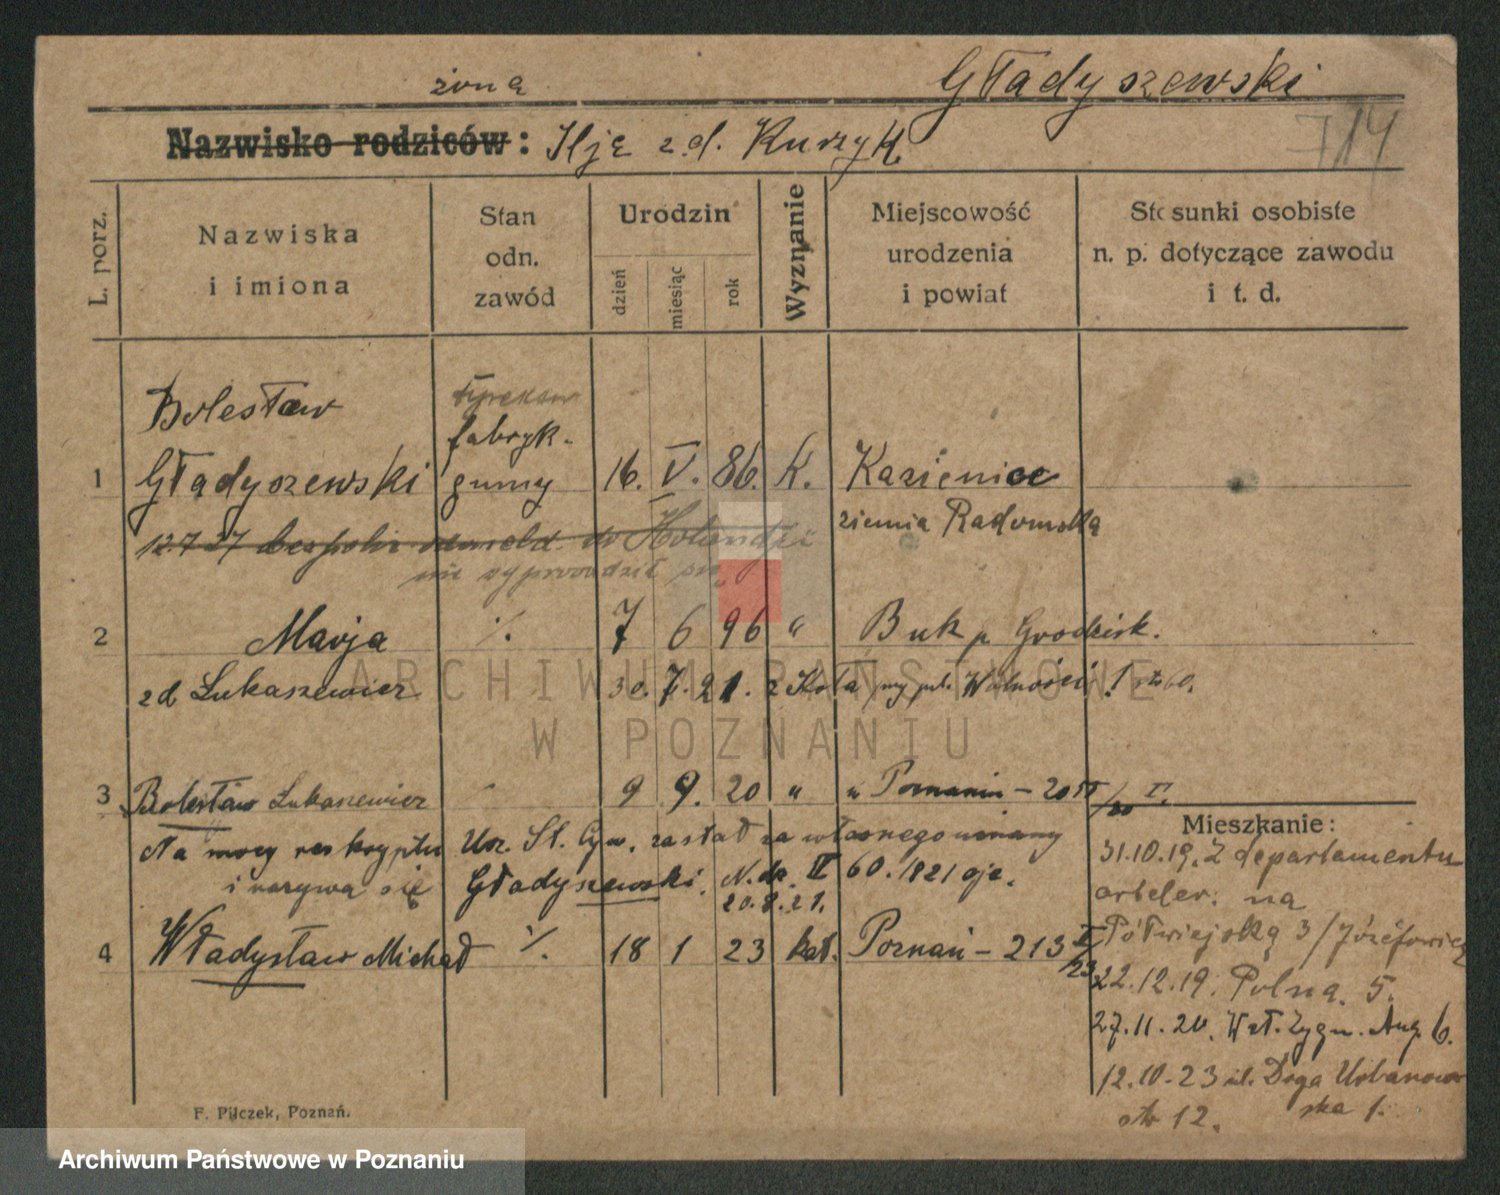 żona
Gładyszewski
714
Nazwisko rodziców: Ilje z d. Kurzyk
L. porz.
Nazwiska i imiona
Stan odn. zawód
Urodzin
dzień
miesiąc
rok
Wyznanie
Miejscowość urodzenia i powiat
Stosunki osobiste n. p. dotyczące zawodu i t. d.
Bolesław
fabryk-
1 Gładyszewski gumy 16. V. 86. K. Kozienice
ziemia Radomską
12.7 27 odmeld. do Holandji
nie wyprowadził się
2 Marja % 7 6 96 " Buk p Grodzisk.
zd Łukaszewicz 30. 7. 21. z Koła Wolności
3 Bolesław Łukaszewicz " 9 9. 20 " " Poznaniu - 20
Mieszkanie:
Na mocy reskryptu Urz. St. Cyw. został za własnego uznany
i nazywa się Gładyszewski. 60./821 oje.
20.8.21.
4 Władysław Michał % 18 1 23 kat. Poznań - 213 I/23
31.10.19. Z departamentu
na
Półwiejską 3/Józefowicz
22.12.19. Polna. 5.
27.11.20. Wzt. Zygm. Aug. 6.
12.10.23 ul. Droga Urbanow
ska 1.
12.
F. Pilczek, Poznań.
ARCHIWUM PAŃSTWOWE
W POZNANIU
Archiwum Państwowe w Poznaniu